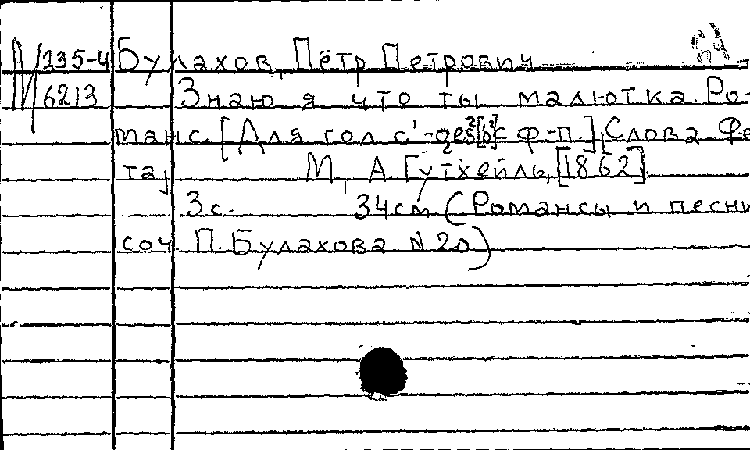 М 135-4 Булахов, Пётр Петрович
М 6213 Знаю я что ты малютка. Ро-
манс. [Для гол. с¹-des²[b²] с ф-п.]. Слова Фе
та,
М., А. Гутхейль, [1862]
3 с. 34 см (Романсы и песни
соч. П. Булахова N 20)